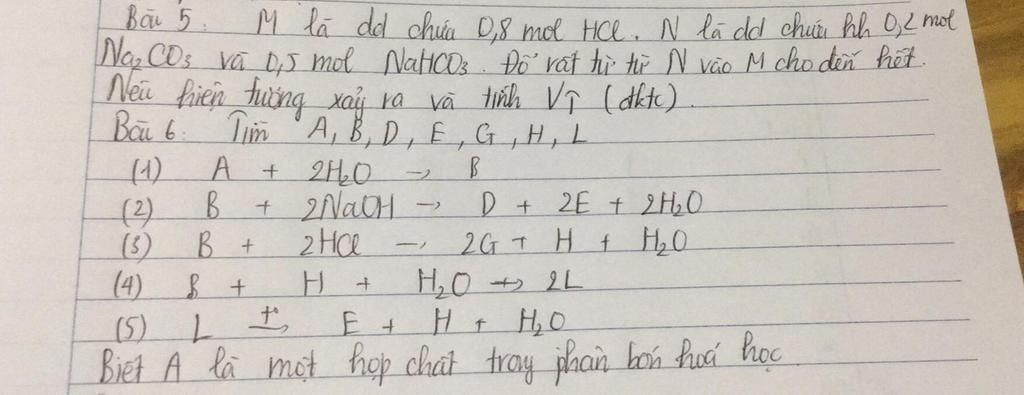 Bài 5: M là dd chứa 0,8 mol HCl. N là dd chứa hh 0,2 mol
Na2CO3 và 0,5 mol NaHCO3. Đổ rất từ từ N vào M cho đến hết.
Nêu hiện tượng xảy ra và tính V↑ (đktc).
Bài 6: Tìm A, B, D, E, G, H, L
(1) A + 2H2O → B
(2) B + 2NaOH → D + 2E + 2H2O
(3) B + 2HCl → 2G + H + H2O
(4) B + H + H2O → 2L
(5) L t°→ E + H + H2O
Biết A là một hợp chất trong phân bón hoá học